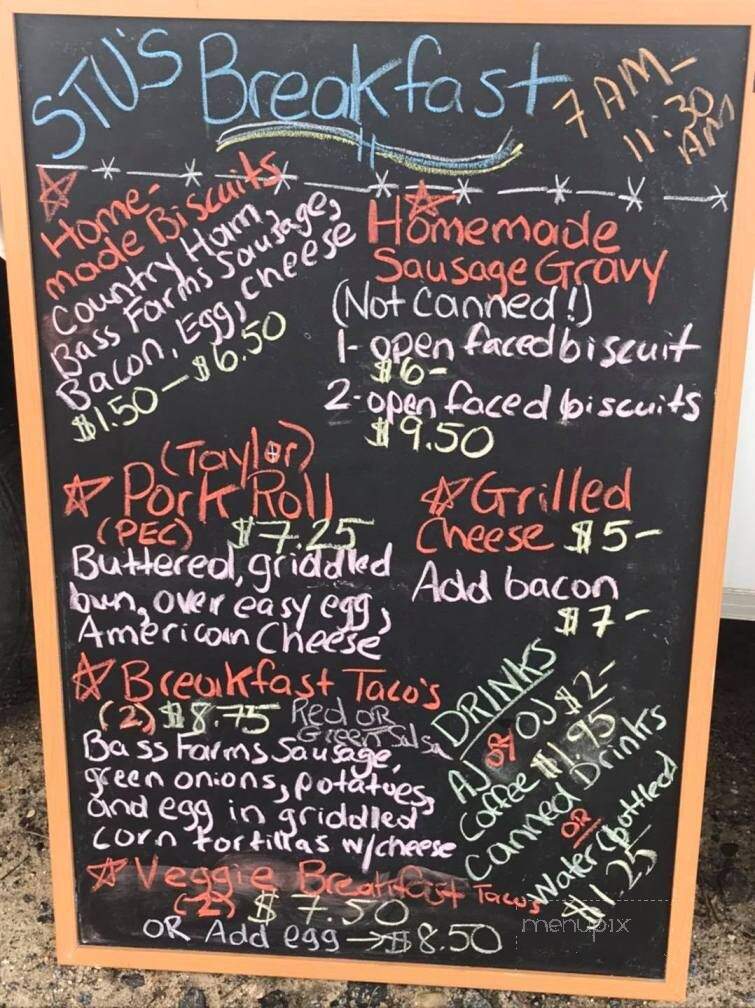 STU'S Breakfast
7 AM-
11:30
AM
Home-
made Biscuits
Country Ham
Bass Farms Sausage,
Bacon, Egg, cheese
$1.50 - $6.50
Homemade
Sausage Gravy
(Not Canned!)
1- open faced biscuit
$6-
2-open faced biscuits
$9.50
(Taylor)
Pork Roll
(PEC) $7.25
Buttered, griddled
bun, over easy egg,
American Cheese
Grilled
Cheese $5-
Add bacon
$7-
Breakfast Taco's
(2) $8.75 Red OR
Green Salsa
Bass Farms Sausage,
green onions, potatoes,
and egg in griddled
corn tortillas w/cheese
Veggie Breakfast Tacos
(2) $7.50
OR Add egg → $8.50
DRINKS
AJ OR OJ $2-
Coffee $1.95
Canned Drinks
OR
Water (bottled
$1.25
menupix